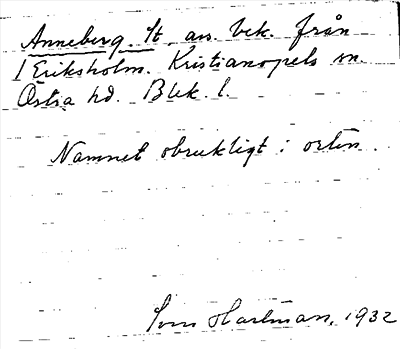 Anneberg. lt, avs. bek. från
1 Eriksholm. Kristianopels sn.
Östra hd. Blek. l.
Namnet obrukligt i orten.
Sven Hartman, 1932